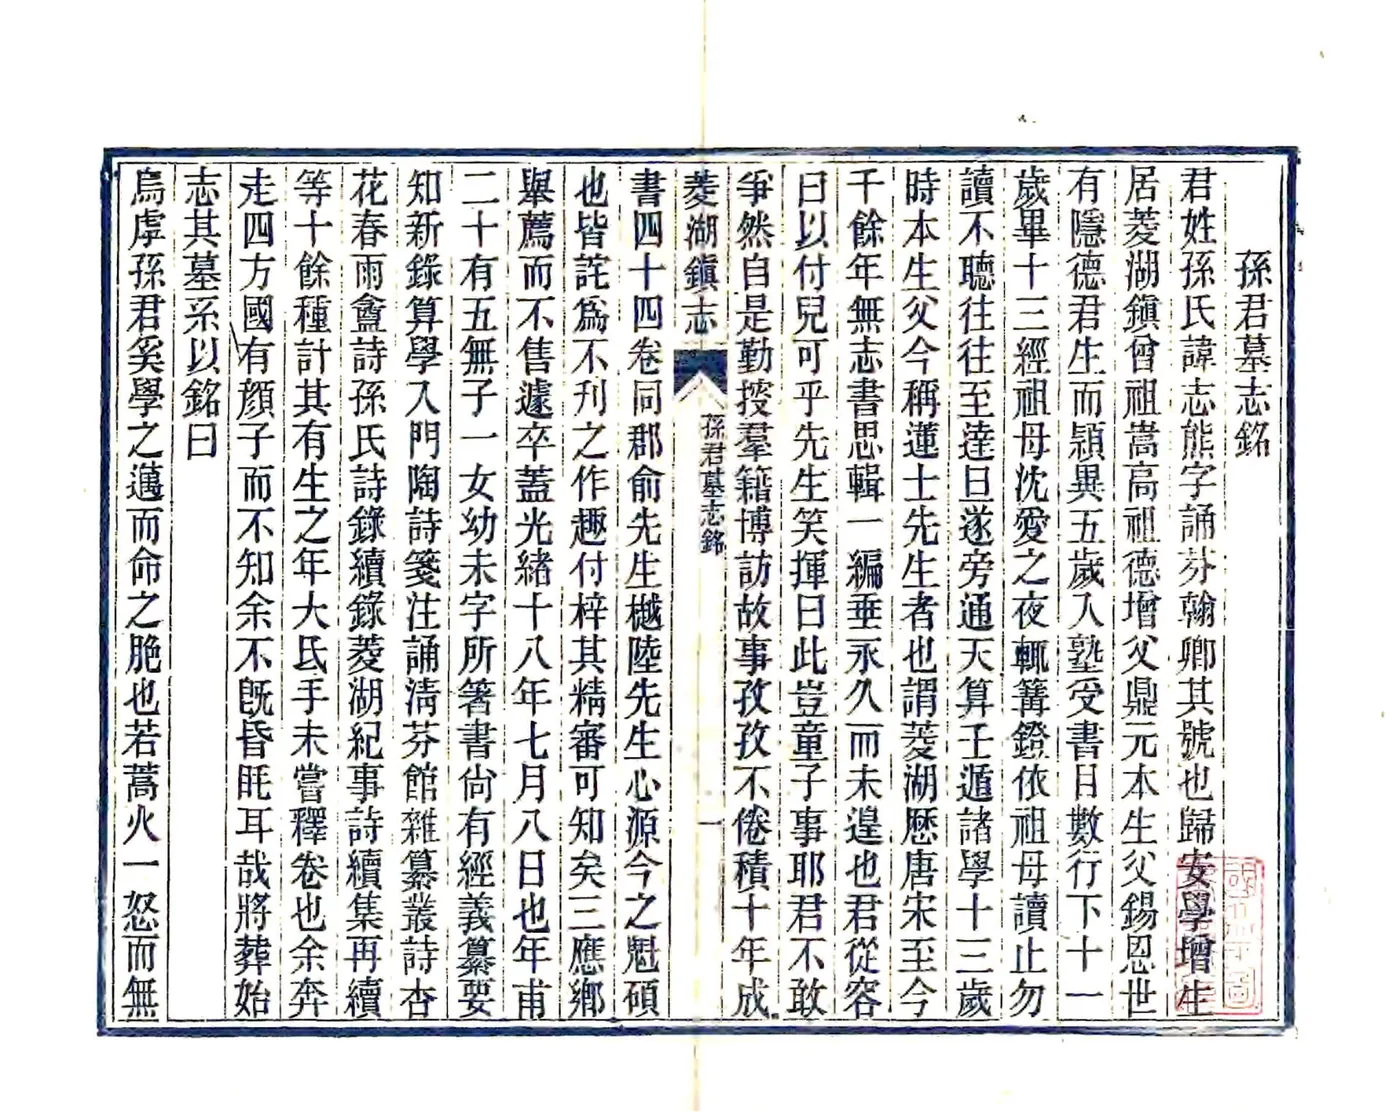 孫君墓志銘
君姓孫氏諱志熊字誦芬翰卿其號也歸安學增生
居菱湖鎮曾祖嵩高祖德增父鼎元本生父錫恩世
有隱德君生而穎異五歲入塾受書日數行下十一
歲畢十三經祖母沈愛之夜輒篝鐙依祖母讀止勿
讀不聽往往至達旦遂旁通天算壬遁諸學十三歲
時本生父今稱蓮士先生者也謂菱湖歷唐宋至今
千餘年無志書思輯一編垂永久而未遑也君從容
曰以付兒可乎先生笑揮曰此豈童子事耶君不敢
爭然自是勤搜羣籍博訪故事孜孜不倦積十年成
菱湖鎮志
孫君墓志銘
一
書四十四卷同郡俞先生樾陸先生心源今之魁碩
也皆詫爲不刊之作趣付梓其精審可知矣三應鄉
舉薦而不售遽卒蓋光緒十八年七月八日也年甫
二十有五無子一女幼未字所箸書尙有經義纂要
知新錄算學入門陶詩箋注誦淸芬館雜纂叢詩杏
花春雨盦詩孫氏詩錄續錄菱湖紀事詩續集再續
等十餘種計其有生之年大氐手未嘗釋卷也余奔
走四方國有顏子而不知余不旣昏眊耳哉將葬始
志其墓系以銘曰
烏虖孫君奚學之邁而命之脃也若蒿火一怒而無